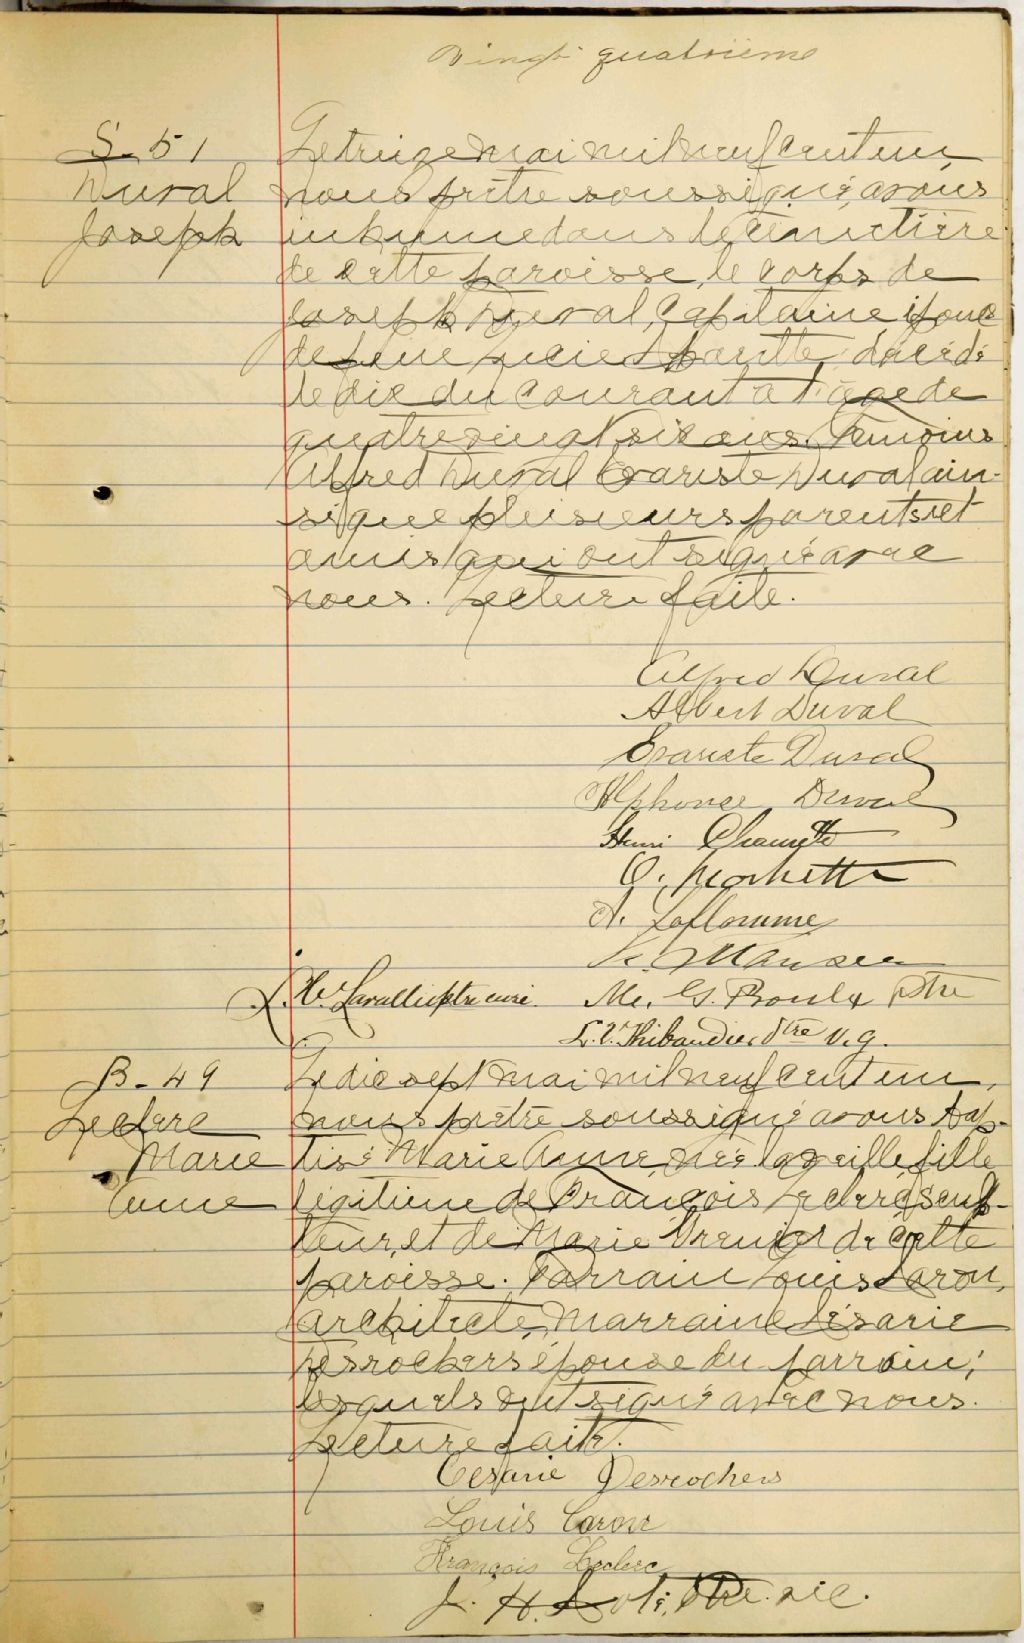 Vingt quatrième
S. 51
Duval
Joseph
Le treize mai mil neuf cent un,
nous prêtre soussigné, avons
inhumé dans le cimetière
de cette paroisse, le corps de
Joseph Duval, Capitaine, époux
de feue Paville, décédé
le dix du courant à l'âge de
quatre vingt six ans. Témoins
Alfred Duval Evariste Duval ain-
si que plusieurs parents et
amis qui ont signé avec
nous. Lecture faite.
Alfred Duval
Albert Duval
Evariste Duval
Alphonse Duval
Henri
O.
A. Laflamme
Ls. Lavallée ptre curé. Me. G. Proulx ptre
L. V. Thibaudier ptre V. G.
B - 49
Leclerc
Marie
Anne
Le dix sept mai mil neuf cent un,
nous prêtre soussigné avons bap-
tisé Marie Anne née la veille fille
légitime de François Leclerc, sculp-
teur, et de Marie Grenier de cette
paroisse. Parrain Louis Caron,
architecte, Marraine Césarie
Desrochers épouse du parrain;
lesquels ont signé avec nous.
Lecture faite.
Césarie Desrochers
Louis Caron
François Leclerc
J. H. ptre. vic.